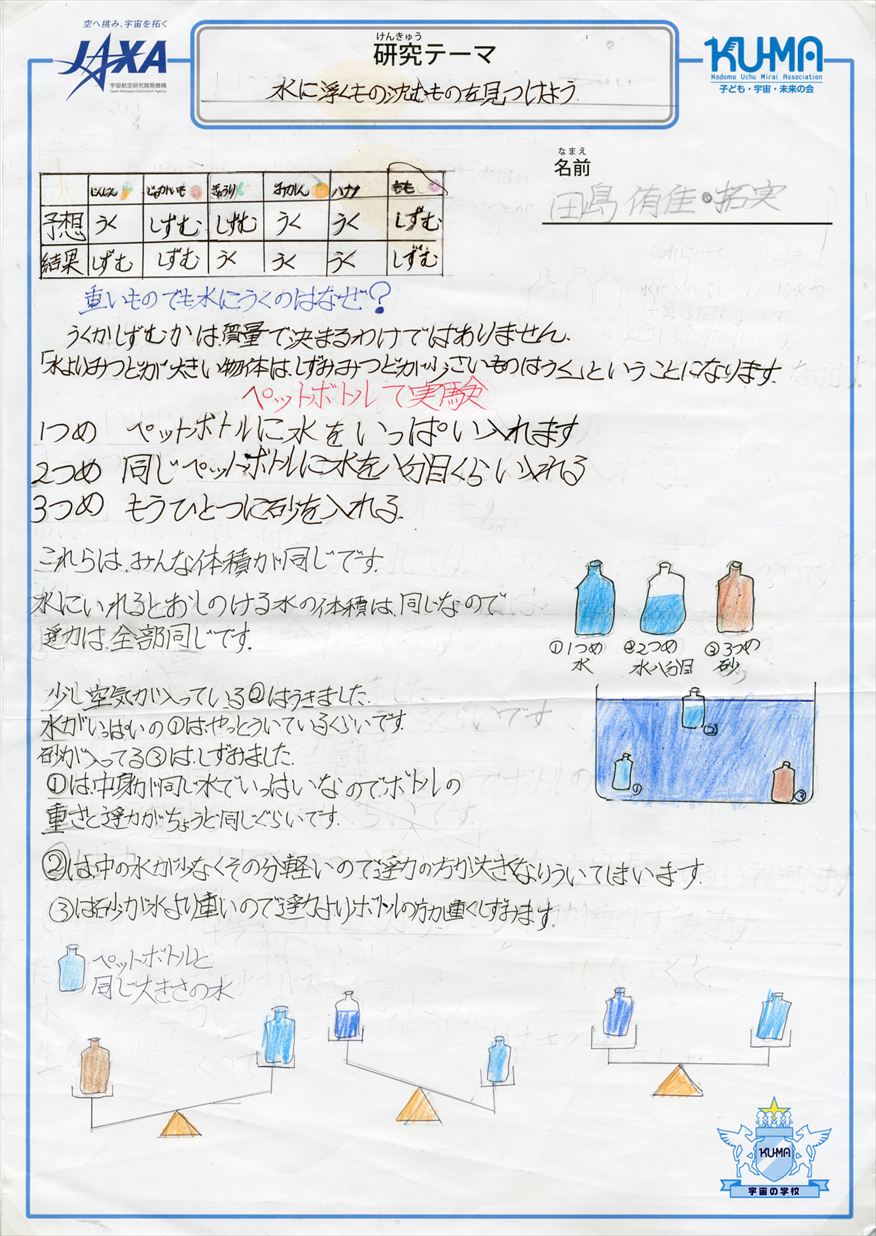 空へ挑み、宇宙を拓く
JAXA
宇宙航空研究開発機構
Japan Aerospace Exploration Agency
けんきゅう
研究テーマ
水に浮くもの沈むものを見つけよう
KU-MA
Kodomo Uchu Mirai Association
子ども・宇宙・未来の会
なまえ
名前
田島 侑佳・拓実
にんじん じゃがいも きゅうり みかん バナナ もも
予想 うく しずむ しずむ うく うく しずむ
結果 しずむ しずむ うく うく うく しずむ
重いものでも水にうくのはなぜ?
うくかしずむかは質量で決まるわけではありません.
「水よりみつどが大きい物体は、しずみみつどが小さいものはうく」ということになります.
ペットボトルで実験
1つめ ペットボトルに水をいっぱい入れます
2つめ 同じペットボトルに水を八分目くらい入れる
3つめ もうひとつに砂を入れる.
これらは、みんな体積が同じです.
水にいれるとおしのける水の体積は、同じなので
浮力は、全部同じです.
①1つめ ②2つめ ③3つめ
水 水八分目 砂
少し空気が入っている②はうきました.
水がいっぱいの①は、やっとういているくらいです.
砂が入ってる③は、しずみました.
①は、中身が同じ水でいっぱいなのでボトルの
重さと浮力がちょうど同じぐらいです.
② ① ③
②は中の水が少なくその分軽いので浮力の方が大きくなりういてしまいます.
③は砂が水より重いので浮力よりボトルの方が重くしずみます.
ペットボトルと
同じ大きさの水
KU-MA
宇宙の学校